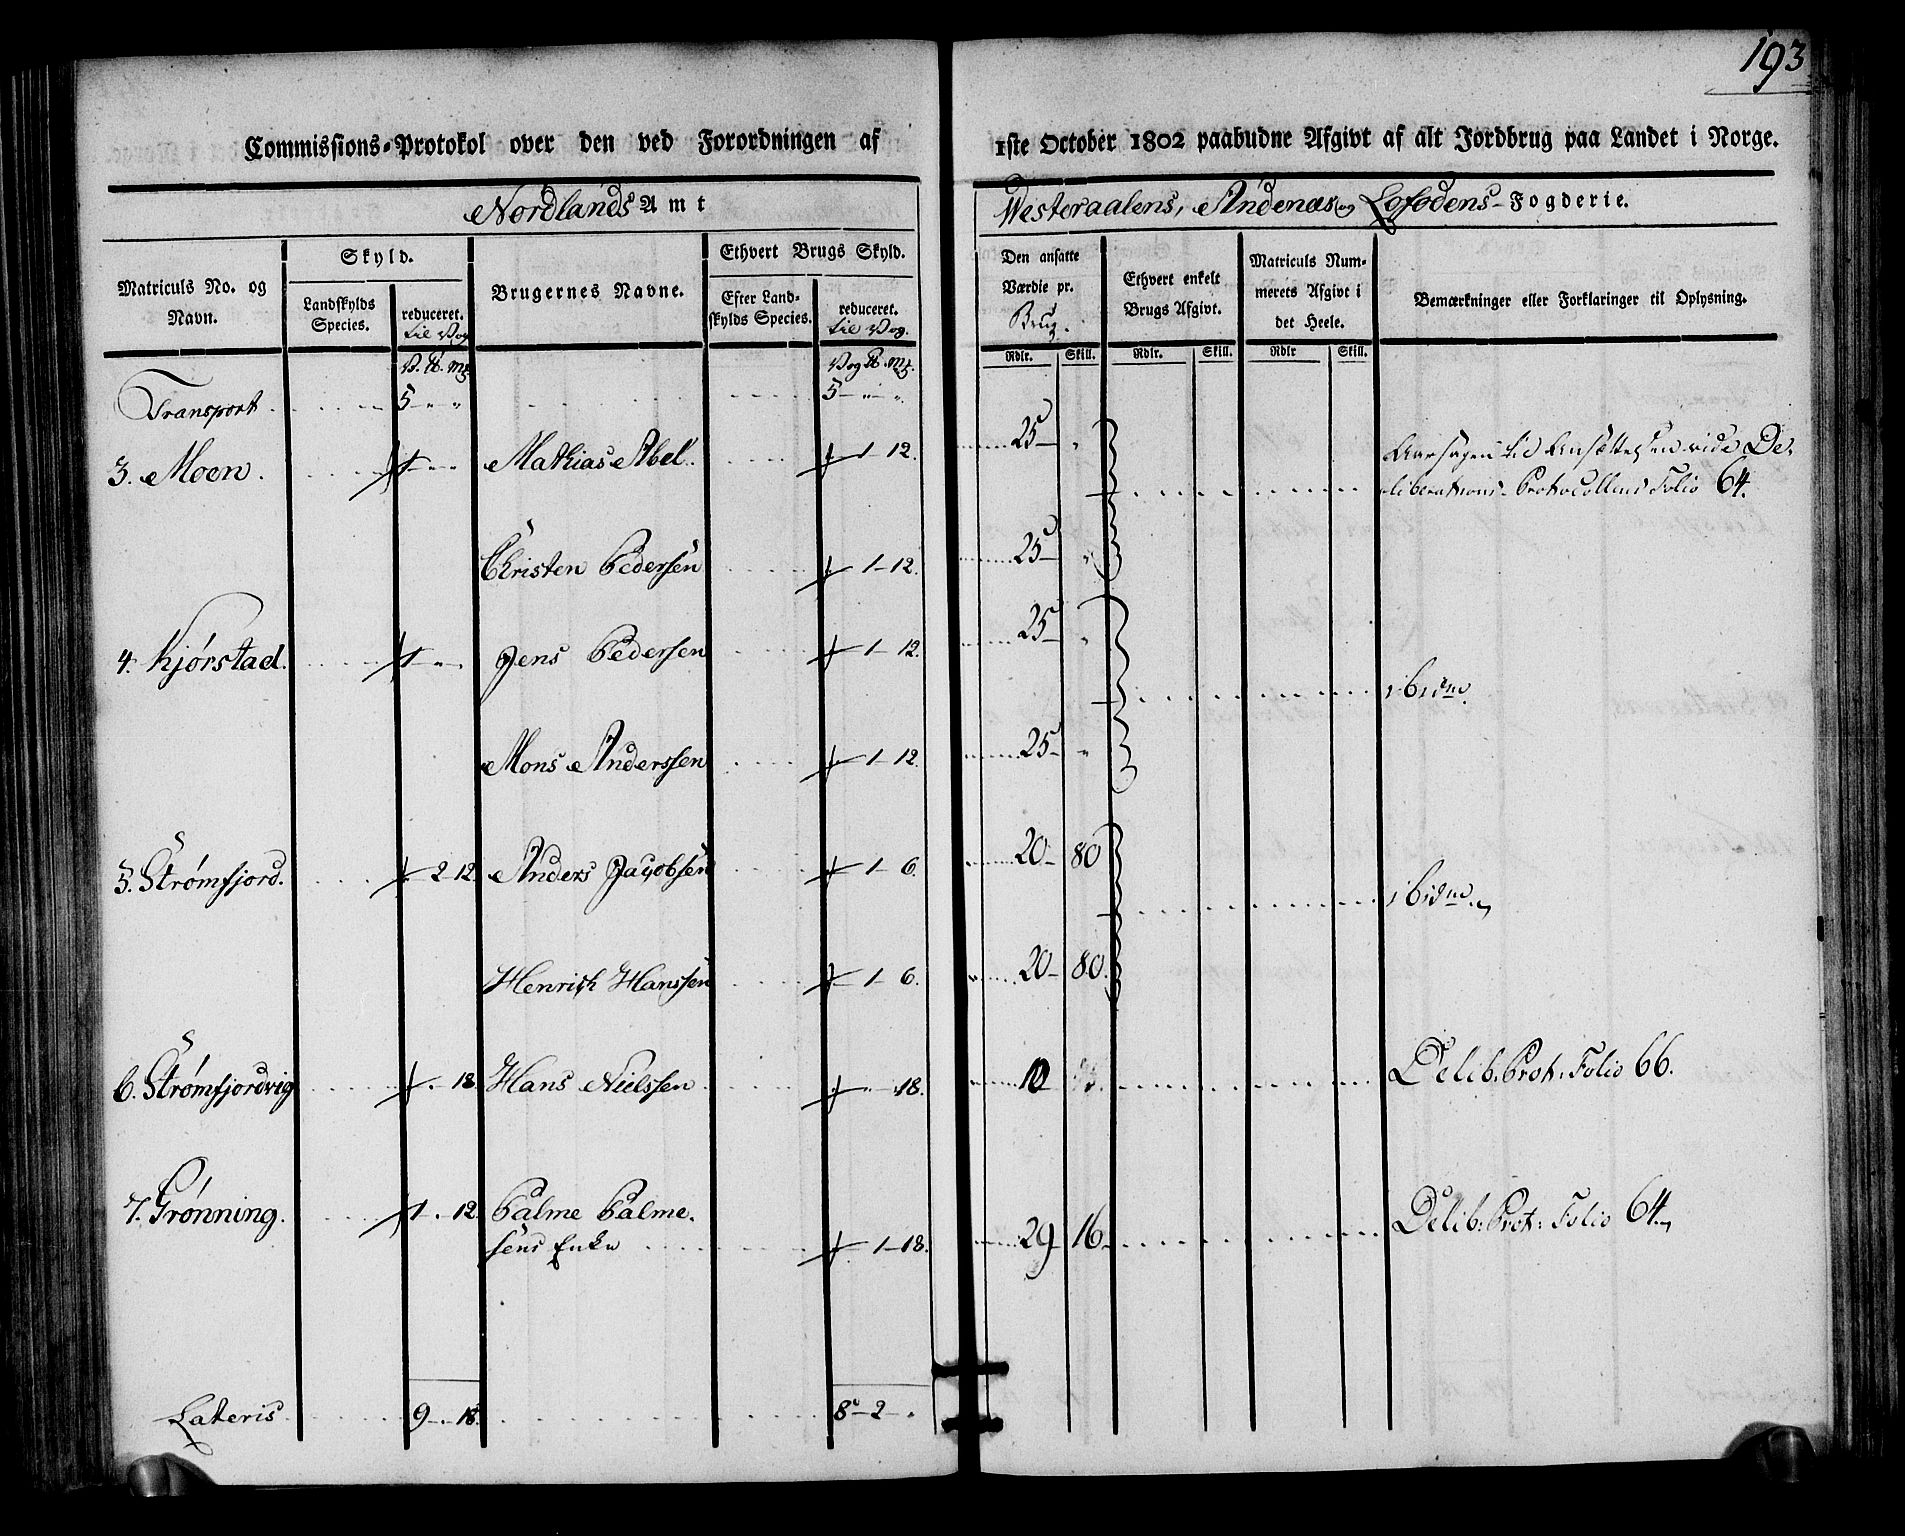 193
Commissions-Protokol over den ved Forordningen af 1ste October 1802 paabudne Afgivt af alt Jordbrug paa Landet i Norge.
Nordlands Amt
Westeraalens, Andenæs og Lofodens-Fogderie.
Matriculs No. og Navn.
Skyld.
Landskylds Species.
reduceret. til Vog
Brugernes Navne.
Ethvert Brugs Skyld.
Efter Landskylds Species.
reduceret. til Vog.
Den ansatte Værdie pr. Brug.
Ethvert enkelt Brugs Afgivt.
Matriculs Nummerets Afgivt i det Heele.
Bemærkninger eller Forklaringer til Oplysning.
Rdlr. Skill. Rdlr. Skill. Rdlr Skill.
V. ℔. mk. Vog ℔. mk.
Transport 5 - " " 5 - " - "
3. Moen. 1 - - - Mathias Abel. ½ - 1 - 12. 25 - " Aarsagen til Ansættelsen vide De-
liberations-Protocollens Folio 64.
Christen Pedersen ½ - 1 - 12. 25 - "
4. Kjørstad. 1 - " - Jens Pedersen ½ - 1 - 12. 25 - " ibidm.
Mons Anderssen ½ - 1 - 12. 25 - "
5. Strømfjord. 2 - 12 Anders Jacobsen 1 - 6. 20 - 80 ibidm.
Henrich Hanssen 1 - 6. 20 - 80.
6. Strømfjordvig 18. Hans Nielssen 18. 10 Delib. Prot: Folio 66.
7. Grønning. 1 . 12. Palme Palme-
sens Enke 1 - 18. 29 16 - Delib: Prot: Folio 64.
Lateris 9 - . 18. 8 - 2 - "